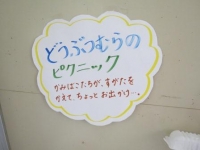 どうぶつむらの
ピクニック
かみはこたちが、すがたを
かえて、ちょっと お出かけ…。